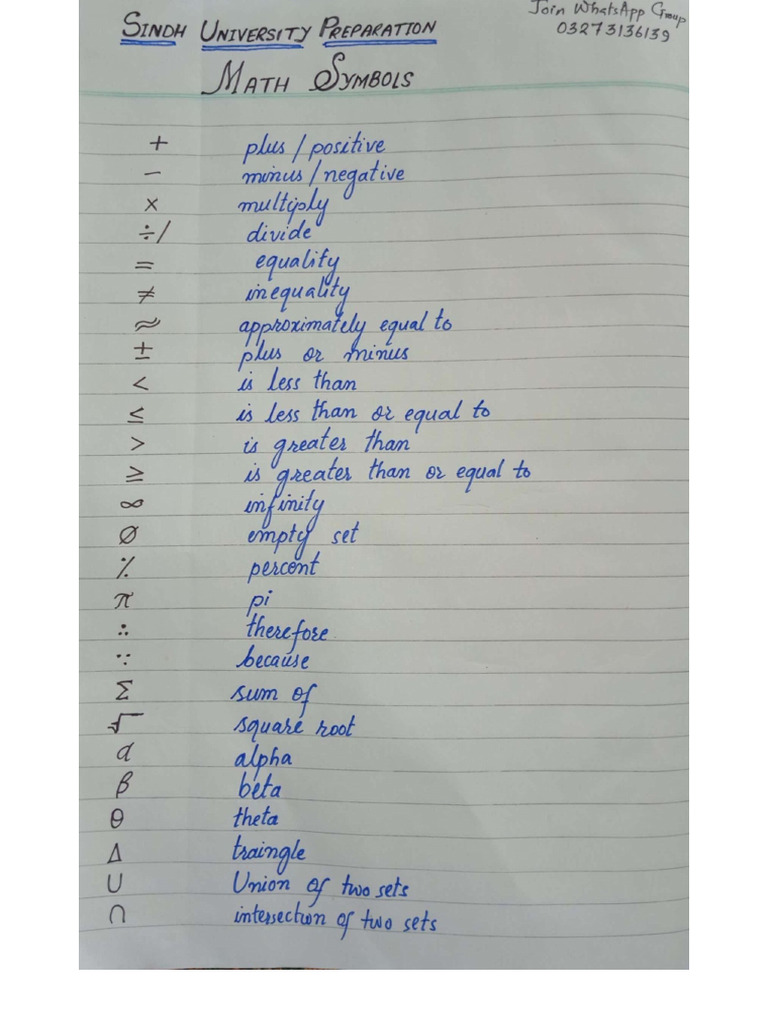 SINDH UNIVERSITY PREPARATION
Join WhatsApp Group
03273136139
MATH SYMBOLS
+ plus / positive
− minus / negative
× multiply
÷ / divide
= equality
≠ inequality
≈ approximately equal to
± plus or minus
< is less than
≤ is less than or equal to
> is greater than
≥ is greater than or equal to
∞ infinity
∅ empty set
% percent
π pi
∴ therefore
∵ because
Σ sum of
√ square root
α alpha
β beta
θ theta
Δ traingle
∪ Union of two sets
∩ intersection of two sets